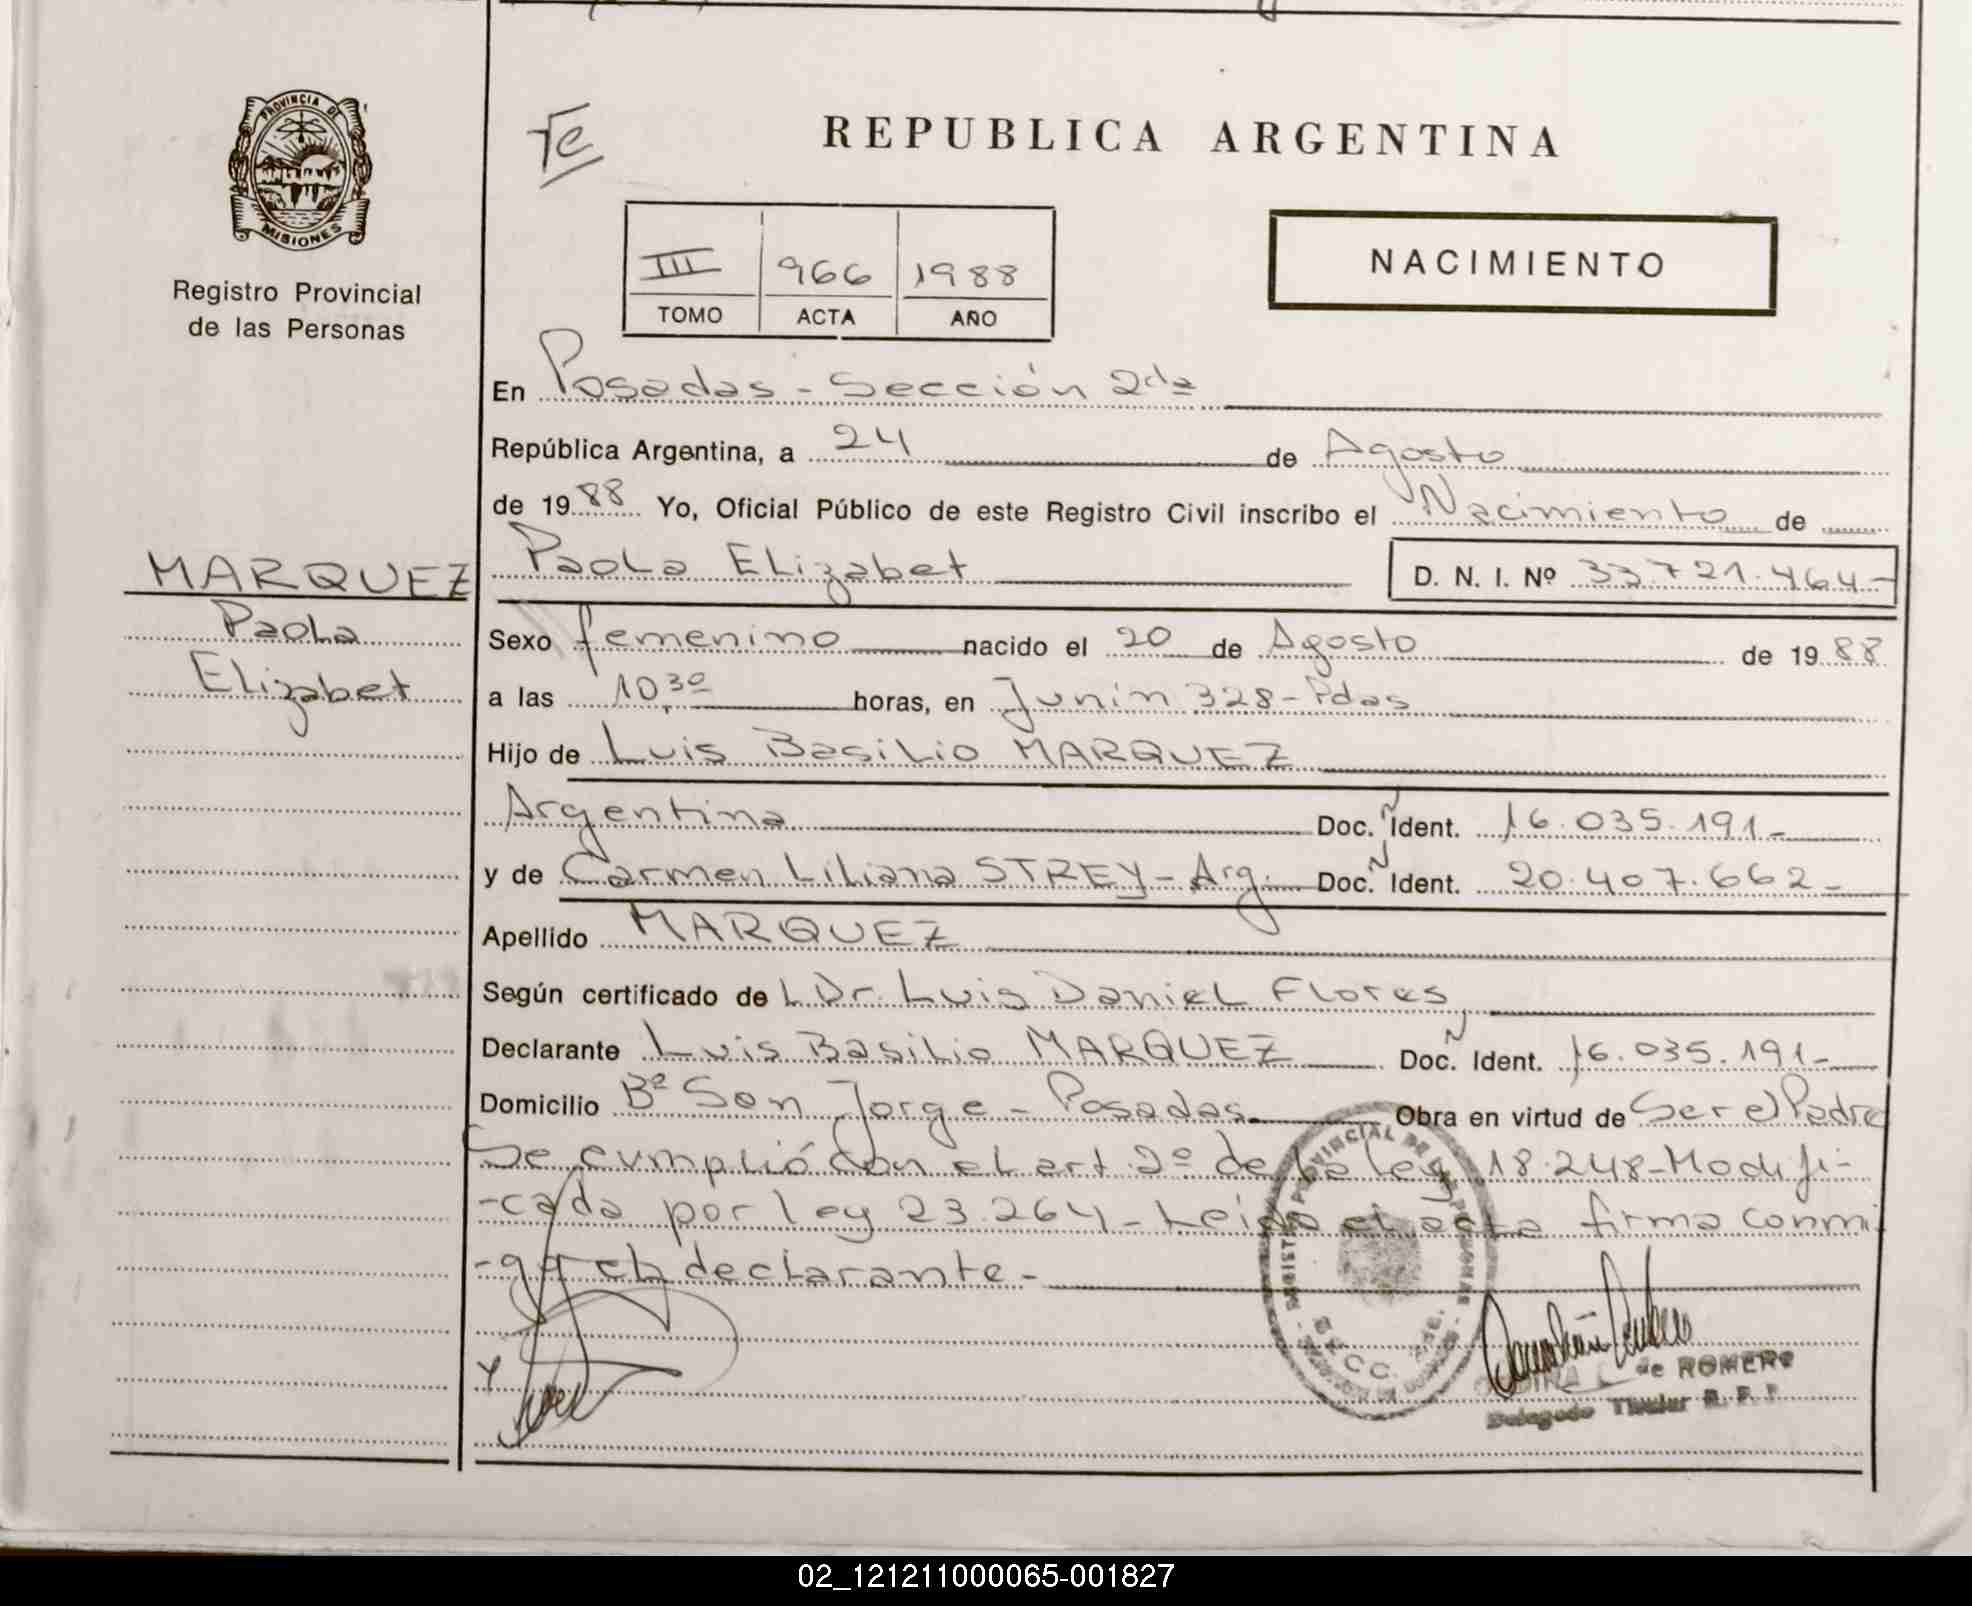 PROVINCIA DE
MISIONES
Registro Provincial
de las Personas
Te
REPUBLICA ARGENTINA
NACIMIENTO
III 966 1988
TOMO ACTA AÑO
En Posadas - Sección 2da
República Argentina, a 24 de Agosto
de 1988 Yo, Oficial Público de este Registro Civil inscribo el Nacimiento de
MARQUEZ
Paola
Elizabet
Paola Elizabet D. N. I. Nº 33.721.464-
Sexo femenino nacido el 20 de Agosto de 1988
a las 10,30 horas, en Junín 328-Pdas
Hijo de Luis Basilio MARQUEZ
Argentina Doc. N Ident. 16.035.191-
y de Carmen Liliana STREY - Arg. Doc. N Ident. 20.407.662-
Apellido MARQUEZ
Según certificado de L Dr. Luis Daniel Flores
Declarante Luis Basilio MARQUEZ Doc. N Ident. 16.035.191-
Domicilio Bº San Jorge - Posadas Obra en virtud de Ser el Padre
Se cumplió con el art. 2º de la ley 18.248-Modifi-
-cada por ley 23.264- Leída el acta firma conmi
-go el declarante-
de ROMERO
Delegado Titular R. P. P.
02_121211000065-001827